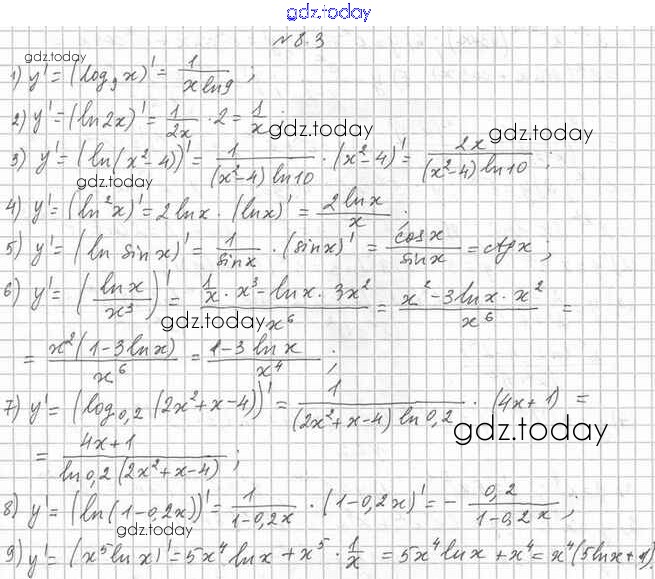 gdz.today
№8.3
gdz.today
1) y' = (log₉x)' = 1/(x ln9) ;
2) y' = (ln2x)' = 1/(2x) · 2 = 1/x ;
gdz.today gdz.today
3) y' = (ln(x²-4))' = 1/((x²-4) ln10) · (x²-4)' = 2x/((x²-4) ln10) ;
gdz.today
4) y' = (ln²x)' = 2 lnx · (lnx)' = 2 lnx/x .
5) y' = (ln sinx)' = 1/sinx · (sinx)' = cosx/sinx = ctgx ;
6) y' = (lnx/x³)' = (1/x · x³ - lnx · 3x²)/x⁶ = (x² - 3lnx · x²)/x⁶ =
gdz.today gdz.today
= x²(1-3lnx)/x⁶ = (1-3 lnx)/x⁴ ;
7) y' = (log₀,₂(2x²+x-4))' = 1/((2x²+x-4) ln0,2) · (4x+1) =
gdz.today
= (4x+1)/(ln0,2 (2x²+x-4)) ;
8) y' = (ln(1-0,2x))' = 1/(1-0,2x) · (1-0,2x)' = - 0,2/(1-0,2x) ;
gdz.today
9) y' = (x⁵lnx)' = 5x⁴lnx + x⁵ · 1/x = 5x⁴lnx + x⁴ = x⁴(5lnx+1)